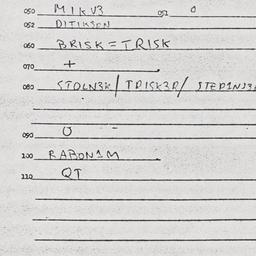 050 MIKV3 051 0
052 DITIKSON
060 BRISK=TRISK
070 +
080 STOLN3K/TRISK3R/STEP1NJ3
090 O
100 RABON1M
110 QT